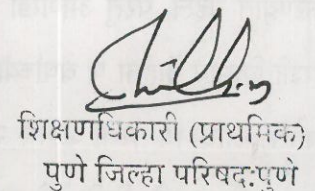 शिक्षणाधिकारी (प्राथमिक)
पुणे जिल्हा परिषद:पुणे